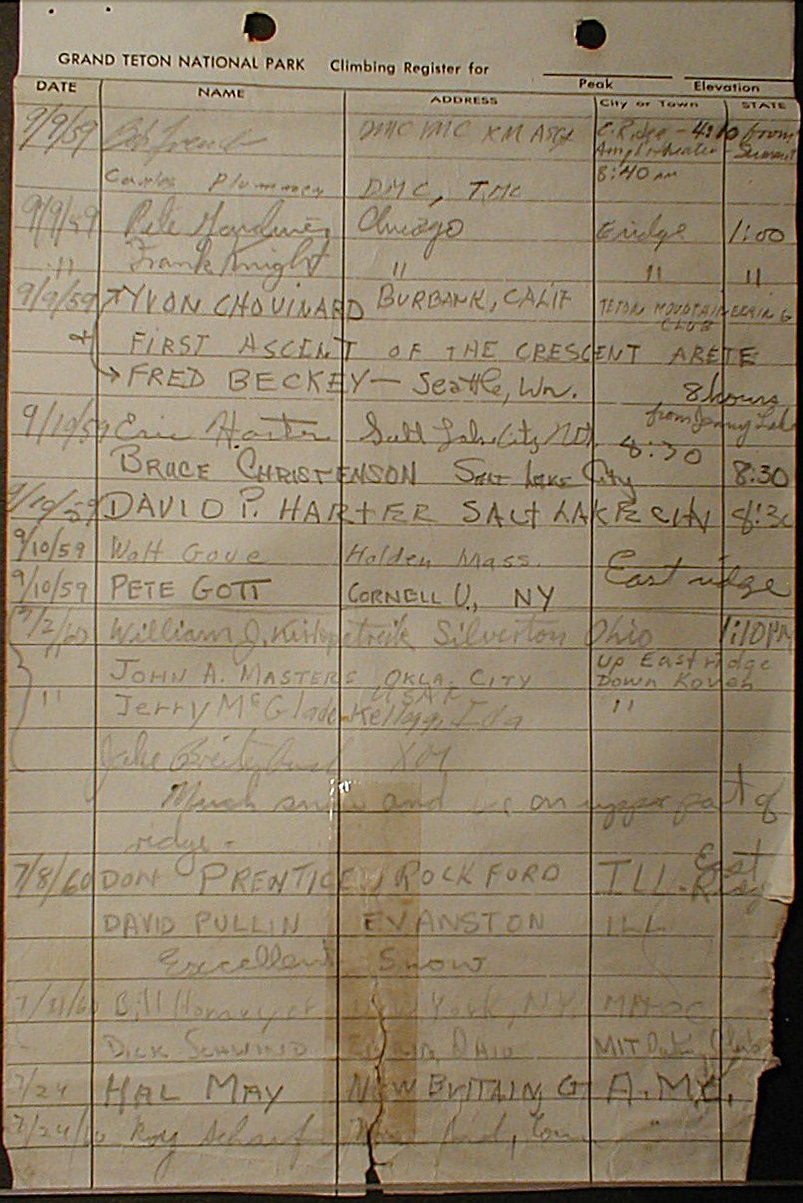 GRAND TETON NATIONAL PARK Climbing Register for
Peak Elevation
DATE NAME ADDRESS City or Town STATE
9/9/59 Bob French DMC IMC E. Ridge - 4:10 from
Amphitheater - Summit
Charles Plummer DMC, TMC 8:40 AM
9/9/59 Pete Gardiner Chicago E ridge 1:00
" Frank Knight " " "
9/9/59 YVON CHOUINARD BURBANK, CALIF TETON MOUNTAINEERING
CLUB
& FIRST ASCENT OF THE CRESCENT ARETE
FRED BECKEY - Seattle, Wn. 8 hours
from Jenny Lake
9/10/59 Eric Harter Salt Lake City 8:30
BRUCE CHRISTENSON SALT LAKE City 8:30
9/10/59 DAVID P. HARTER SALT LAKE CITY 8:30
9/10/59 Walt Gove Holden Mass.
9/10/59 PETE GOTT CORNELL U., NY East ridge
7/2/60 William J. Kirkpatrick Silverton Ohio 1:10 PM
" JOHN A. MASTERS OKLA. CITY Up East ridge
Down Koven
USAF
" Jerry McGlade Kellogg Ida "
Jake Breitenbach
Much snow and ice on upper part of
ridge.
7/8/60 DON PRENTICE, ROCKFORD ILL. East
Ridge
DAVID PULLIN EVANSTON ILL
Excellent Snow
Bill New York, NY.
DICK OHIO MIT Club
7/24 HAL MAY NEW BRITAIN, CT A.M.C.
7/24/60 Roy Conn "